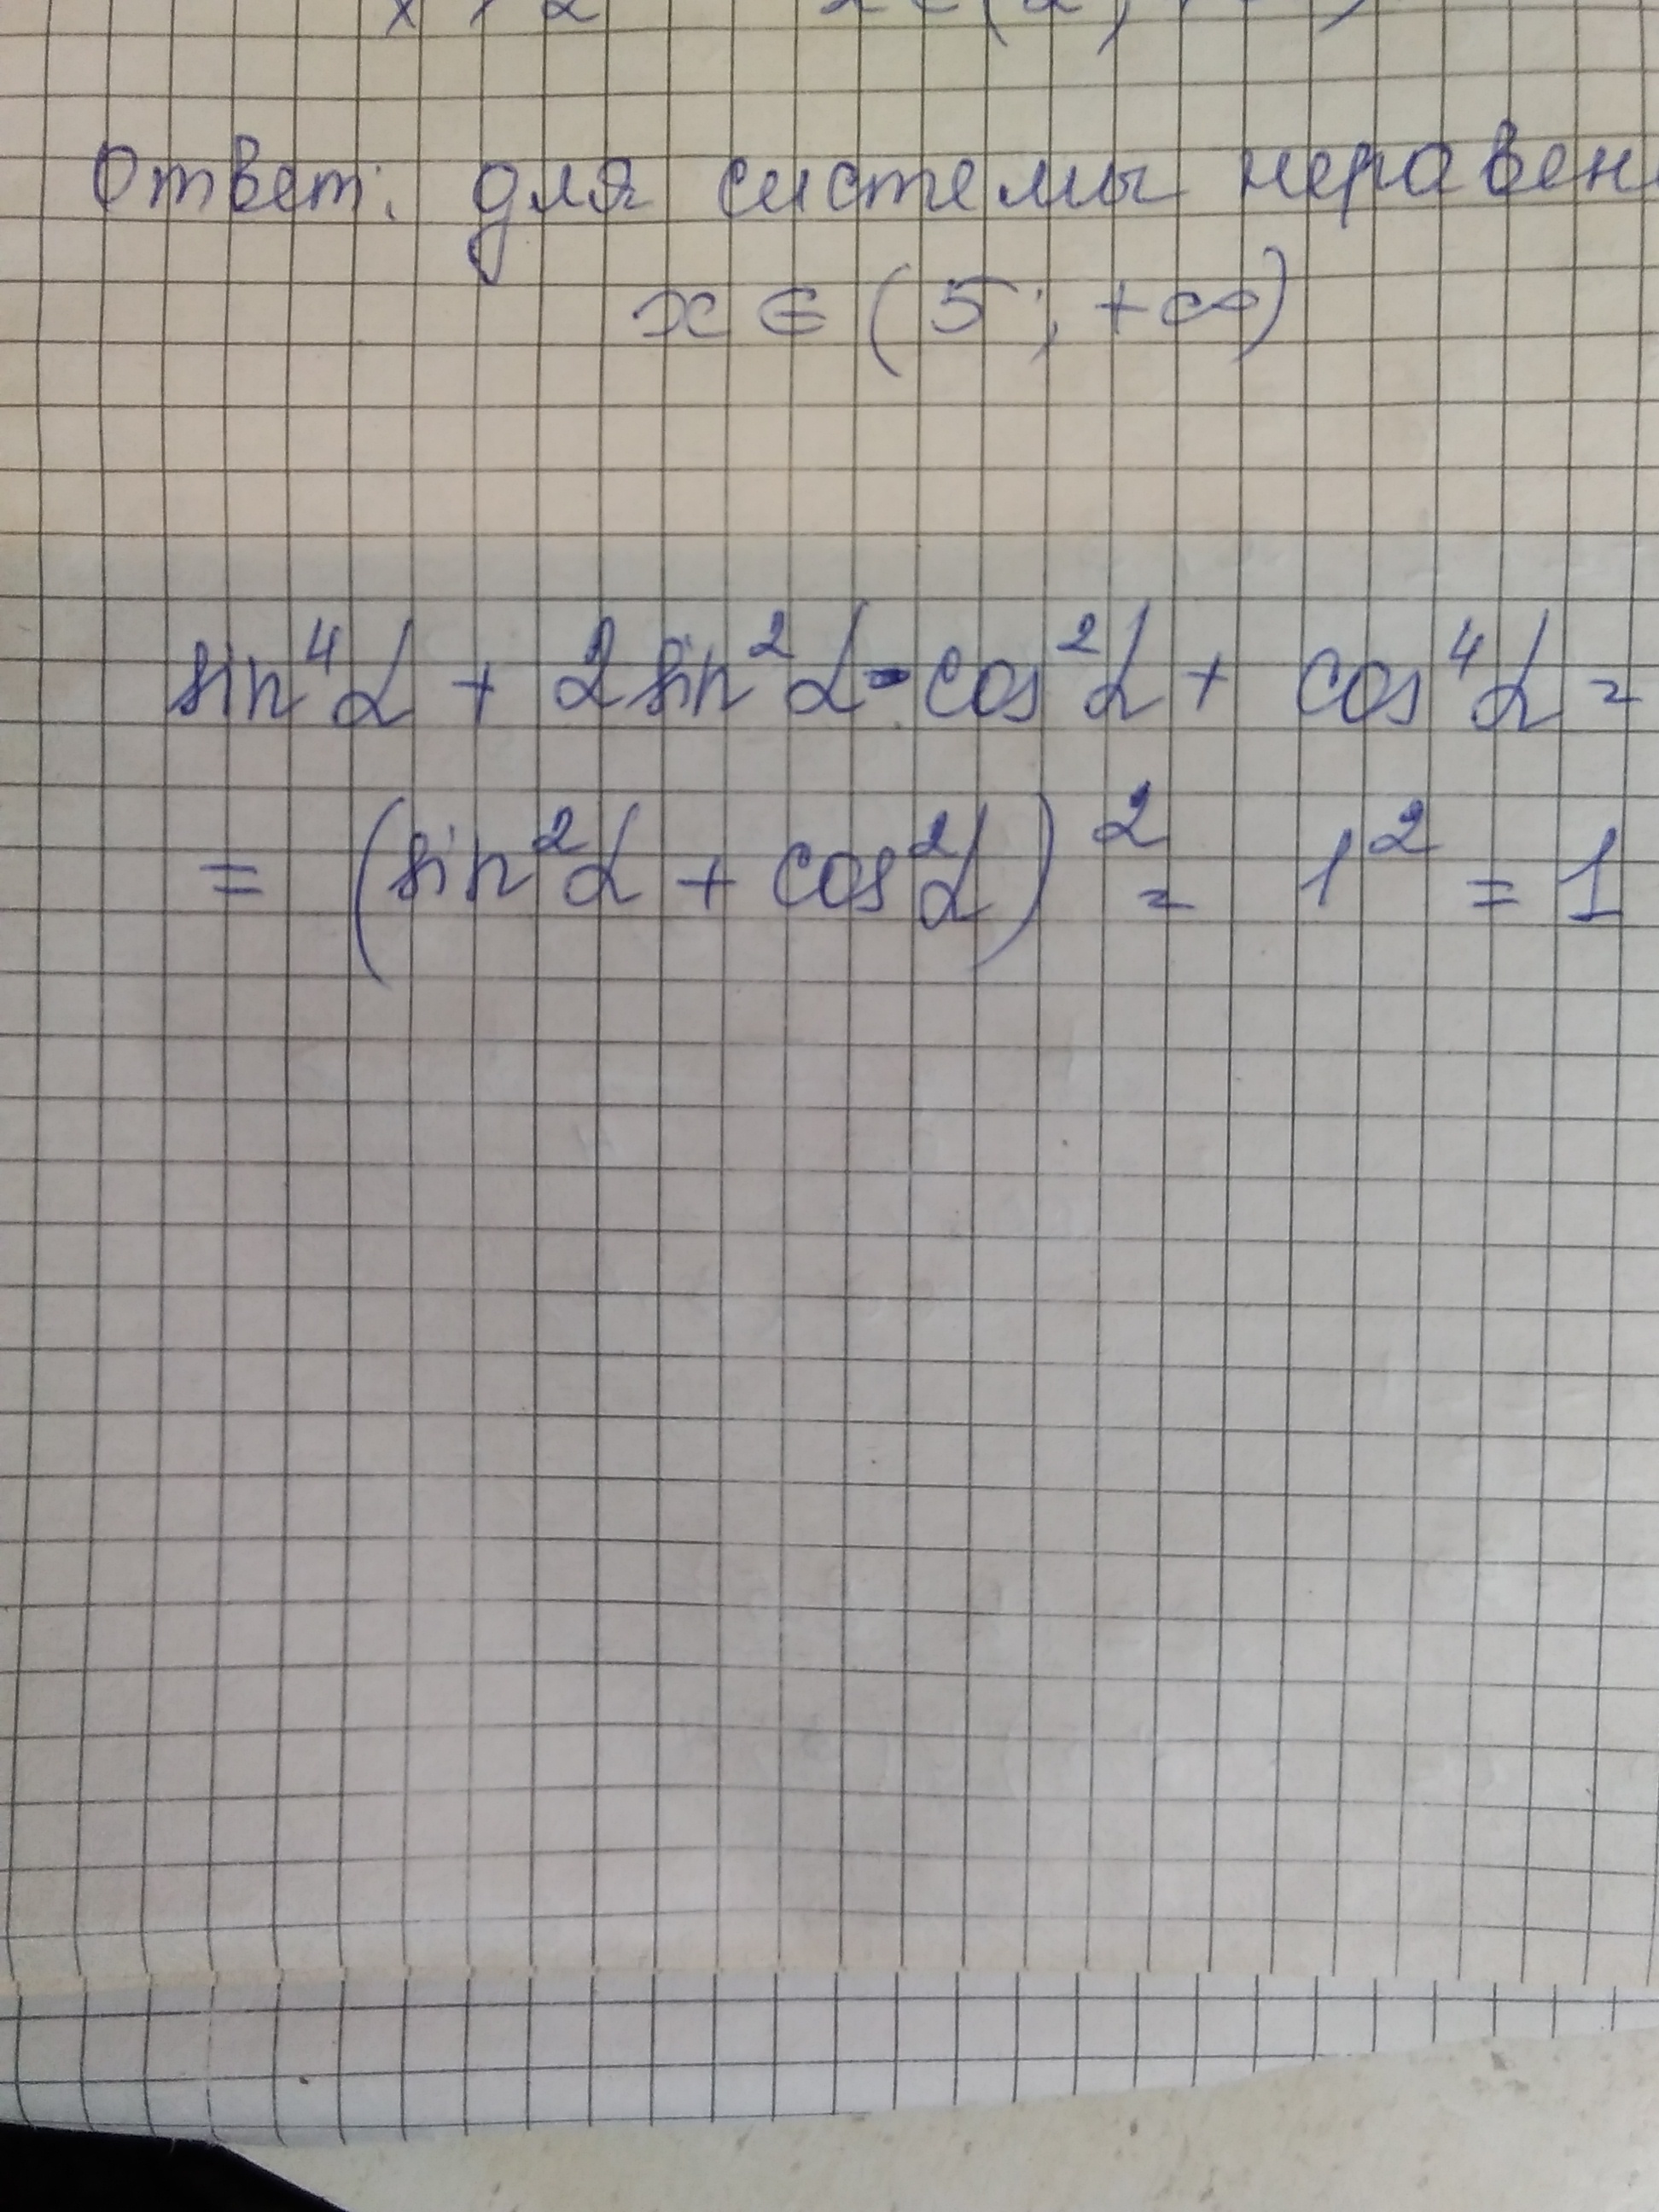 Ответ: для системы
x ∈ (5; +∞)
sin⁴α + 2sin²α·cos²α + cos⁴α =
= (sin²α + cos²α)² = 1² = 1